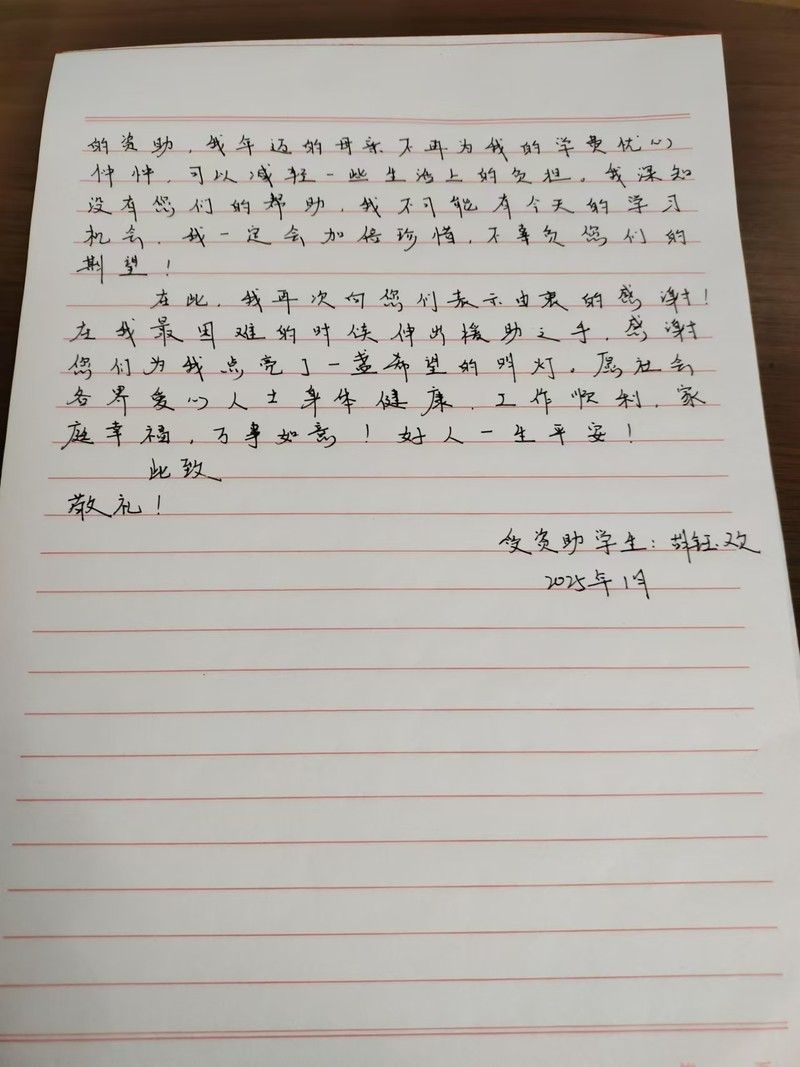 的资助，我年迈的母亲不再为我的学费忧心
忡忡，可以减轻一些生活上的负担。我深知
没有您们的帮助，我不可能有今天的学习
机会，我一定会加倍珍惜，不辜负您们的
期望！
在此，我再次向您们表示由衷的感谢！
在我最困难的时候伸出援助之手，感谢
您们为我点亮了一盏希望的明灯。愿社会
各界爱心人士身体健康，工作顺利，家
庭幸福，万事如意！好人一生平安！
此致
敬礼！
受资助学生：胡钰欢
2025年1月